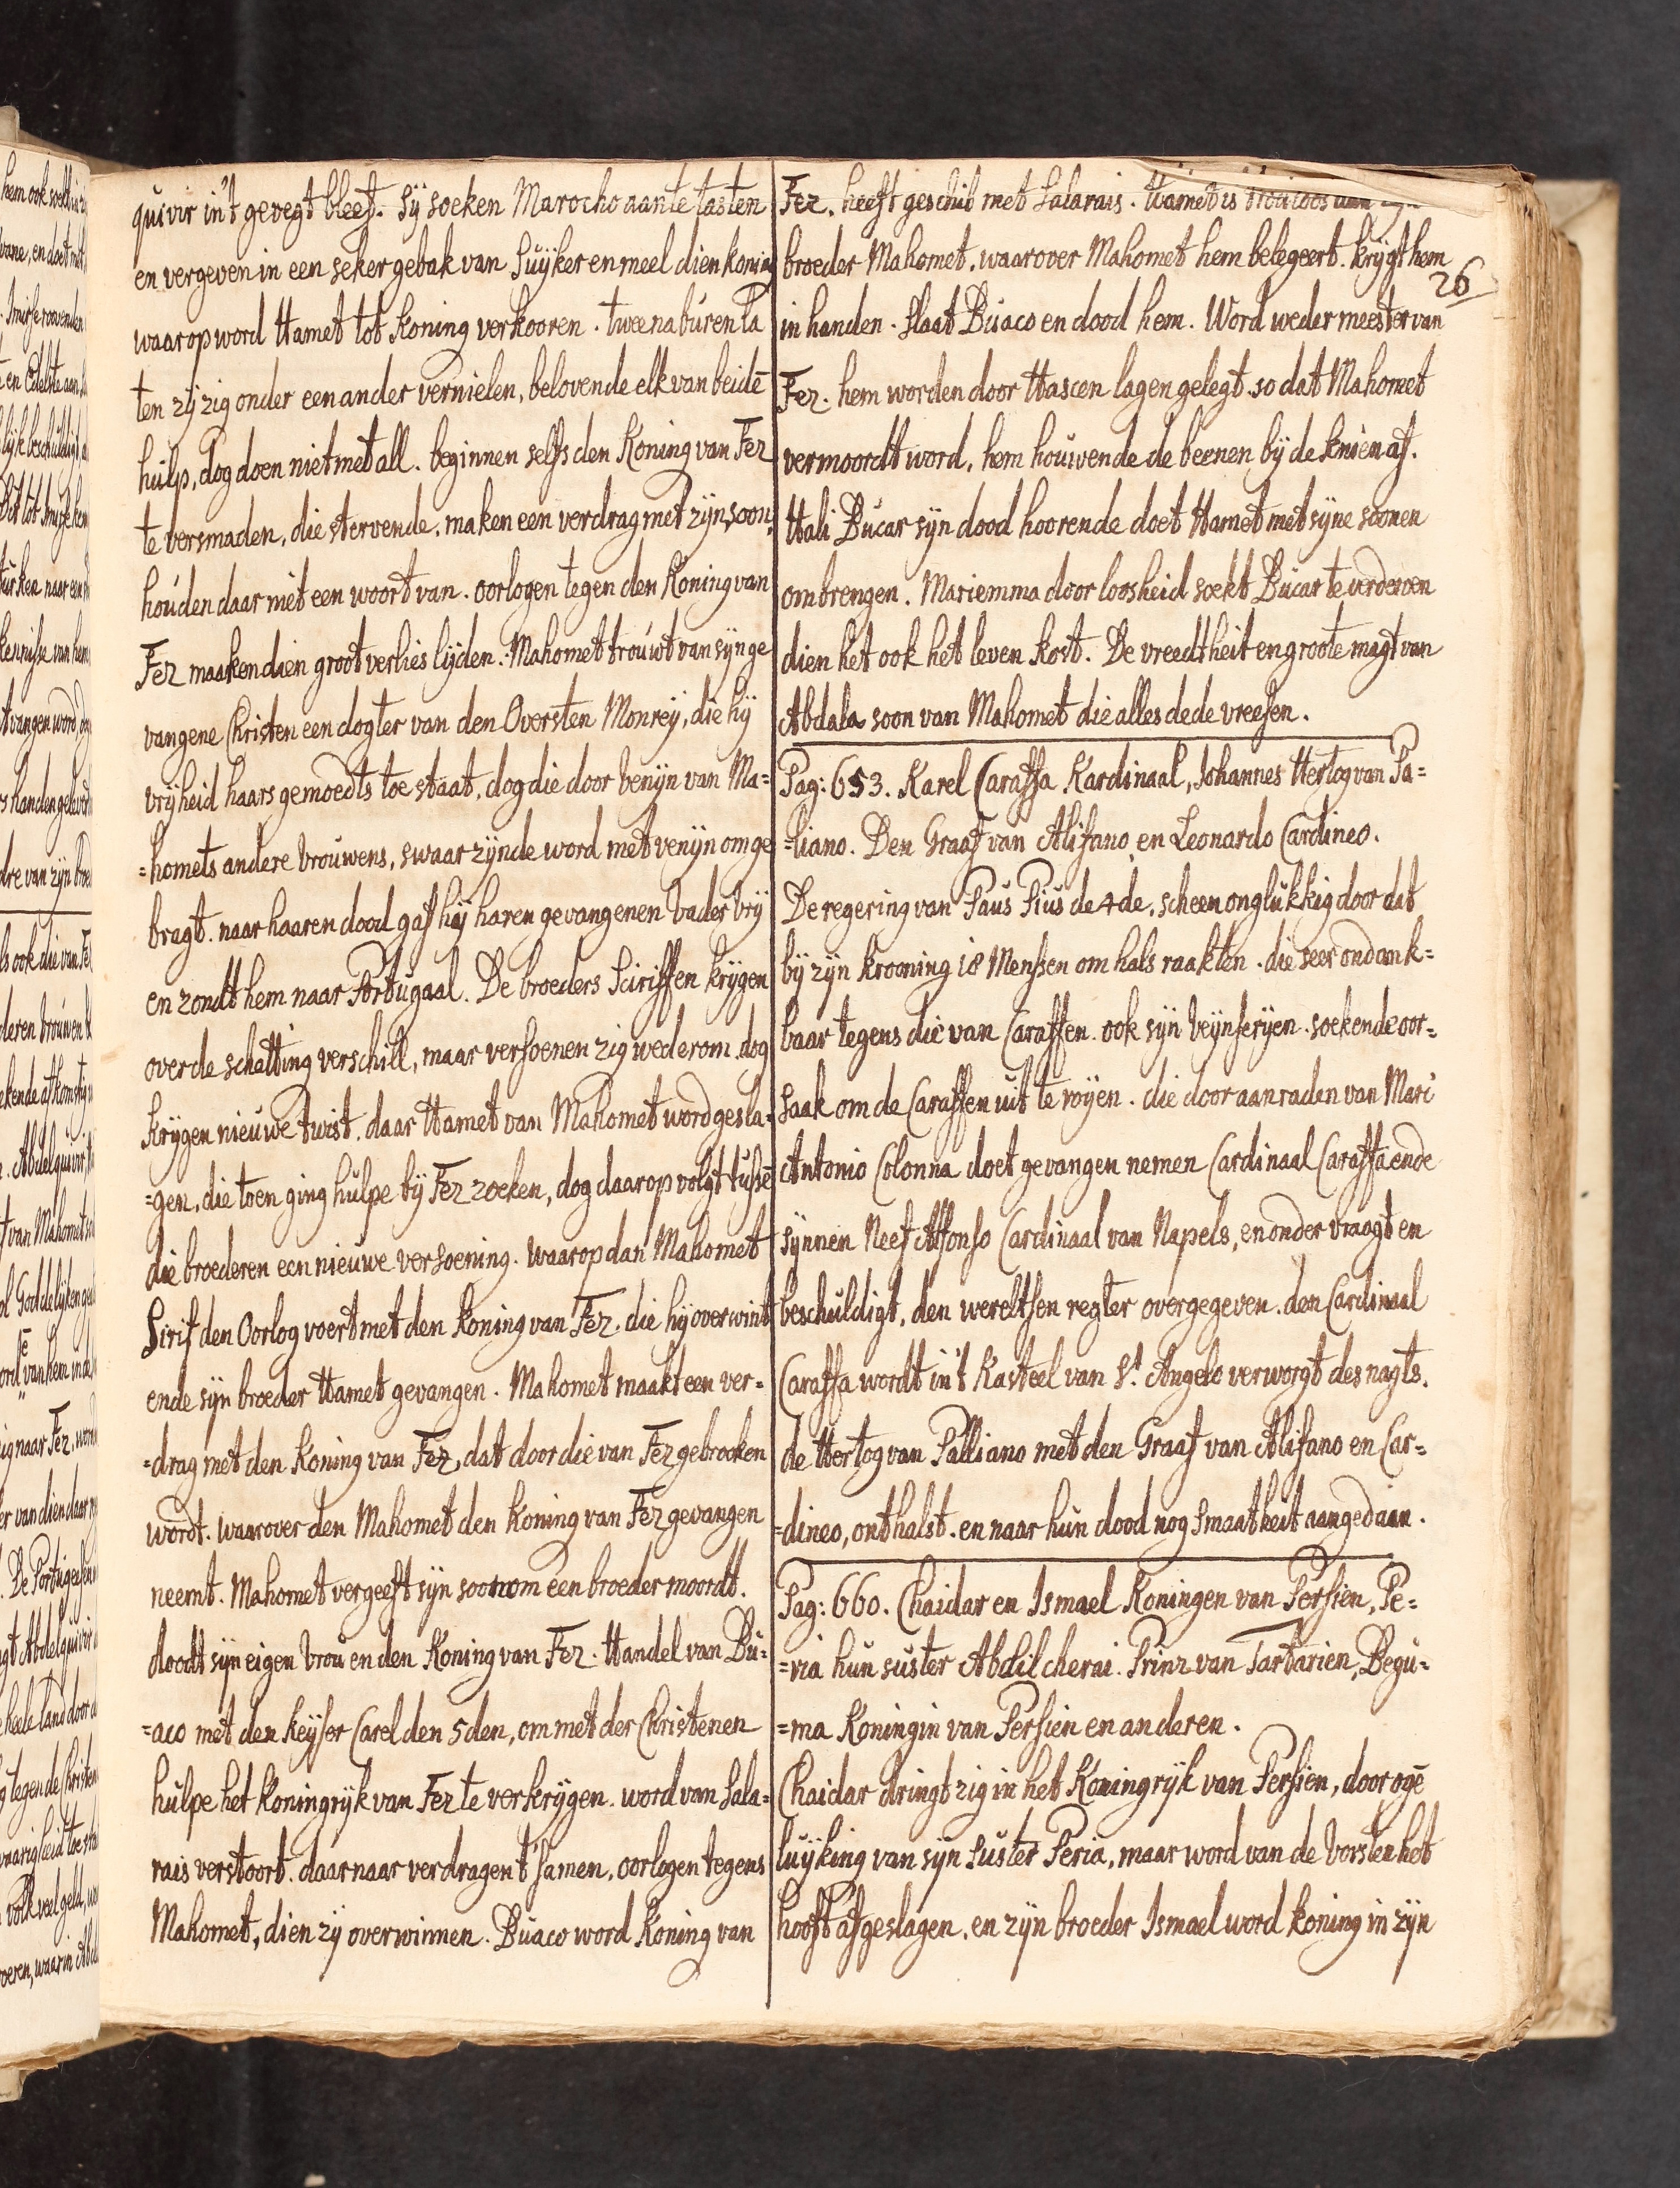 quivir in't gevegt bleef. Sÿ soeken Marocho aan te tasten
en vergeven in een seker gebak van Suÿker en meel dien koning
waarop word Hamet tot Koning verkooren. twee naburen la
ten zÿ zig onder een ander vernielen, belovende elk van beidē
hulp, dog doen niet met all. beginnen selfs den Koning van Fez
te versmaden, die stervende, maken een verdrag met zÿn soon,
houden daar niet een woort van. oorlogen tegen den Koning van
Fez maaken dien groot verlies lÿden. Mahomet trouwt van sÿn ge
vangene Christen een dogter van den Oversten Monreÿ, die hÿ
vrÿheid haars gemoedts toe staat, dog die door venÿn van Ma=
=homets andere vrouwens, swaar zÿnde word met venÿn omge
bragt. naar haaren dood gaf hÿ haren gevangenen vader vrÿ
en zondt hem naar Portugaal. De broeders Sciriffen krÿgen
over de schatting verschill, maar versoenen zig wederom. dog
krÿgen nieuwe twist, daar Hamet van Mahomet word gesla=
=gen, die toen ging hulpe bÿ Fez zoeken, dog daarop volgt tussē
die broederen een nieuwe versoening. waarop dan Mahomet
Sirif den Oorlog voert met den Koning van Fez. die hÿ overwint
ende sÿn broeder Hamet gevangen. Mahomet maakt een ver=
=drag met den Koning van Fez, dat door die van Fez gebrooken
wordt. waarover den Mahomet den Koning van Fez gevangen
neemt. Mahomet vergeeft sÿn soon om een broeder moordt.
doodt sÿn eigen vrou en den Koning van Fez. Handel van Bu=
=aco met den Keÿser Carel den 5den, om met der Christenen
hulpe het Koningrÿk van Fez te verkrÿgen. word van Sala=
rais verstoort. daarnaar verdragen t'samen, oorlogen tegens
Mahomet, dien zÿ overwinnen. Buaco word Koning van
Fez. heeft geschil met Salarais. Hamet is
broeder Mahomet. waarover Mahomet hem belegeert. krÿgt hem
26
in handen. slaat Buaco en dood hem. Word weder meester van
Fez. hem worden door Hascen lagen gelegt. so dat Mahomet
vermoordt word, hem houwende de beenen bÿ de knien af.
Hali Bucar sÿn dood hoorende doet Hamet met sÿne soonen
ombrengen. Mariemma door loosheid soekt Bucar te verderven
dien het ook het leven kost. De vreedtheit en groote magt van
Abdala soon van Mahomet die alles dede vreesen.
Pag: 653. Karel Caraffa Kardinaal, Johannes Hertog van Pa=
=liano. Den Graaf van Alifano en Leonardo Cardineo.
De regering van Paus Pius de 4de, scheen onglukkig door dat
bÿ zÿn krooning 18 Menssen om hals raakten. die seer ondank=
baar tegens die van Caraffen. ook sÿn veÿnserÿen. soekende oor=
saak om de Caraffen uit te roÿen. die door aanraden van Marc
Antonio Colonna doet gevangen nemen Cardinaal Caraffa ende
sÿnnen Neef Alfonso Cardinaal van Napels, en onder vraagt en
beschuldigt, den wereltsen regter overgegeven. den Cardinaal
Caraffa wordt in't Kasteel van St. Angelo verworgt des nagts.
de Hertog van Palliano met den Graaf van Alifano en Car=
=dineo, onthalst. en naar hun dood nog smaatheit aangedaan.
Pag: 660. Chaidar en Ismael Koningen van Persien, Pe=
=ria hun suster Abdil cherai. Prinz van Tartarien, Begu=
=ma Koningin van Persien en anderen.
Chaidar dringt zig in het Koningrÿk van Persien, door ogē
luÿking van sÿn suster Peria, maar word van de vorsten het
hooft afgeslagen, en zÿn broeder Ismael word koning in zÿn